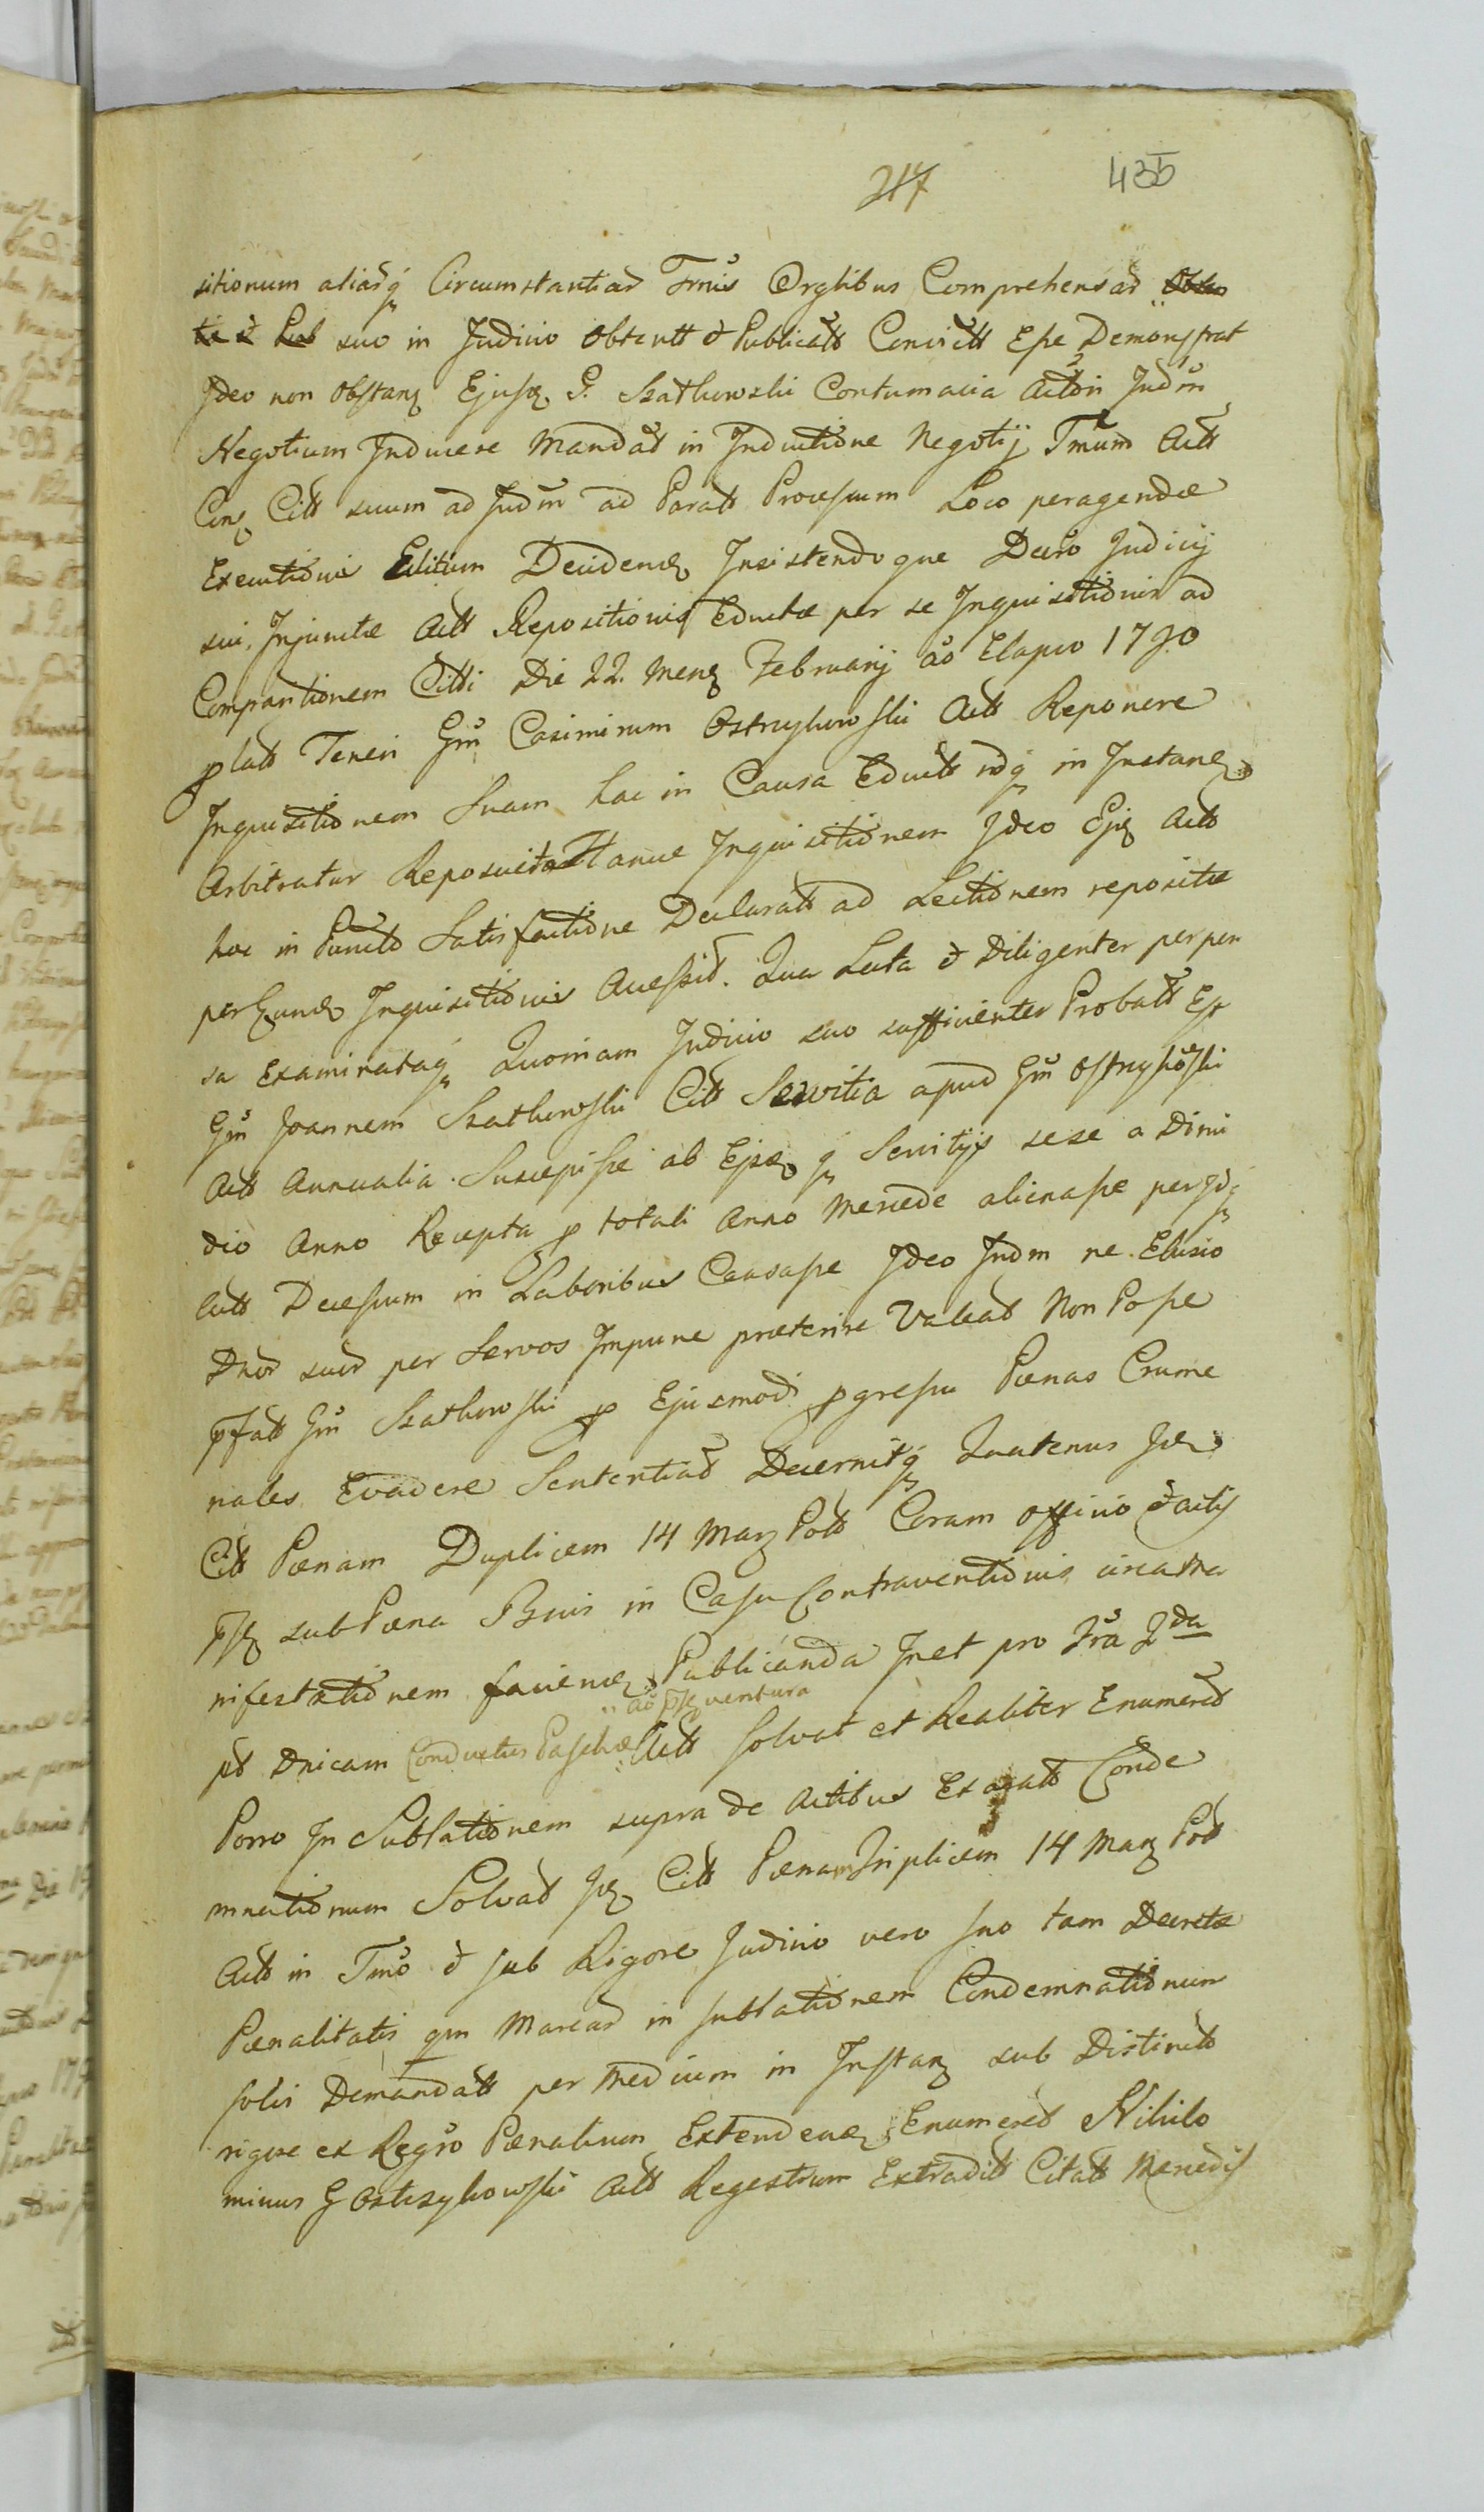 217 435
sitionum aliarq Circumstantiar Trnis Orglibus Comprehensar
suo in Judicio Obtentt & Publicatt Convictt Esse Demonstrat
Ideo non Obstanz Ejusz G. Szatkowski Contumacia Actori Judm
Negotium Inducere Mandat in Inductione Negotij Trnum Actt
Conz Citt suum ad Judm ad Paratt Processum Loco peragendæ
Executionis Editum Decidendz Insistendoque Decro Judicij
sui, Injunctæ Actt Repositionis Eductæ per se Inquisitionis ad
Comparitionem Citti Die 22. Menz Februarij ao Elapso 1790
platt Teneri Gm Casimirum Ostrzykowski Actt Reponere
Inquisitionem Suam hac in Causa Eductt idq in Instanz
Arbitratur Reposuit Hancce Inquisitionem Ideo Ejz Actt
hoc in Puncto Satisfactione Declaratt ad Lectionem repositæ
per Eundz Inquisitionis Accessit. Qua Lecta & Diligenter perpen
sa Examinataq Quoniam Judicio suo sufficienter Probatt Est
Gm Joannem Szatkowski Citt Servitia apud Gm Ostrzykoski
Actt Annualia Suscepisse ab Ejsz q Servitijs sese a Dimi
dio Anno Recepta p totali Anno Mercede alienasse per Idq
Actt Decessum in Laboribus Causasse Ideo Judm ne Elusio
Dnor suor per Servos Impune præterire Valeat Non Posse
pfatt Gm Szatkowski p Ejusmodi pgressu Pænas Crume
nales Evadere Sententiat Decernitq Quatenus Isz
Citt Pænam Duplicem 14 Marz Poll Coram Officio & Actis
psz sub Pæna Bnis in Casu Contraventionis circa Ma
nifestationem faciendz Publicanda Inet pro Fra 2da
pt Dnicam Conductus Paschæ Actt Solvat et Realiter Enumeret
ao pse ventura
Porro In Sublationem supra de Actibus Exaratt Conde
mnationum Solvat Isz Citt Pænam Triplicem 14 Marz Poll
Actt in Tmo & sub Rigore Judicio vero suo tam Decretæ
Pænalitatis qm Marcar in sublationem Condemnationum
solis Demandatt per Medium in Instanz sub Distincto
rigore ex Regro Pænalium Extendendz Enumeret Nihilo
minus G Ostrzykowski Actt Regestrum Extraditt Citatt Mercedis